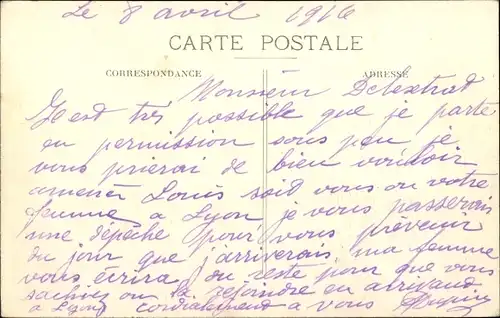 Le 8 avril 1916
CARTE POSTALE
CORRESPONDANCE
ADRESSE
Monsieur Delextrat
Il est très possible que je parte
en permission sous peu, je
vous prierai de bien vouloir
amener Louis soit vous ou votre
femme a Lyon je vous passerais
une dépêche pour vous prévenir
du jour que j'arriverais, ma femme
vous écrira, du reste pour que vous
sachiez ou la rejoindre en arrivant
a Lyon cordialement a vous